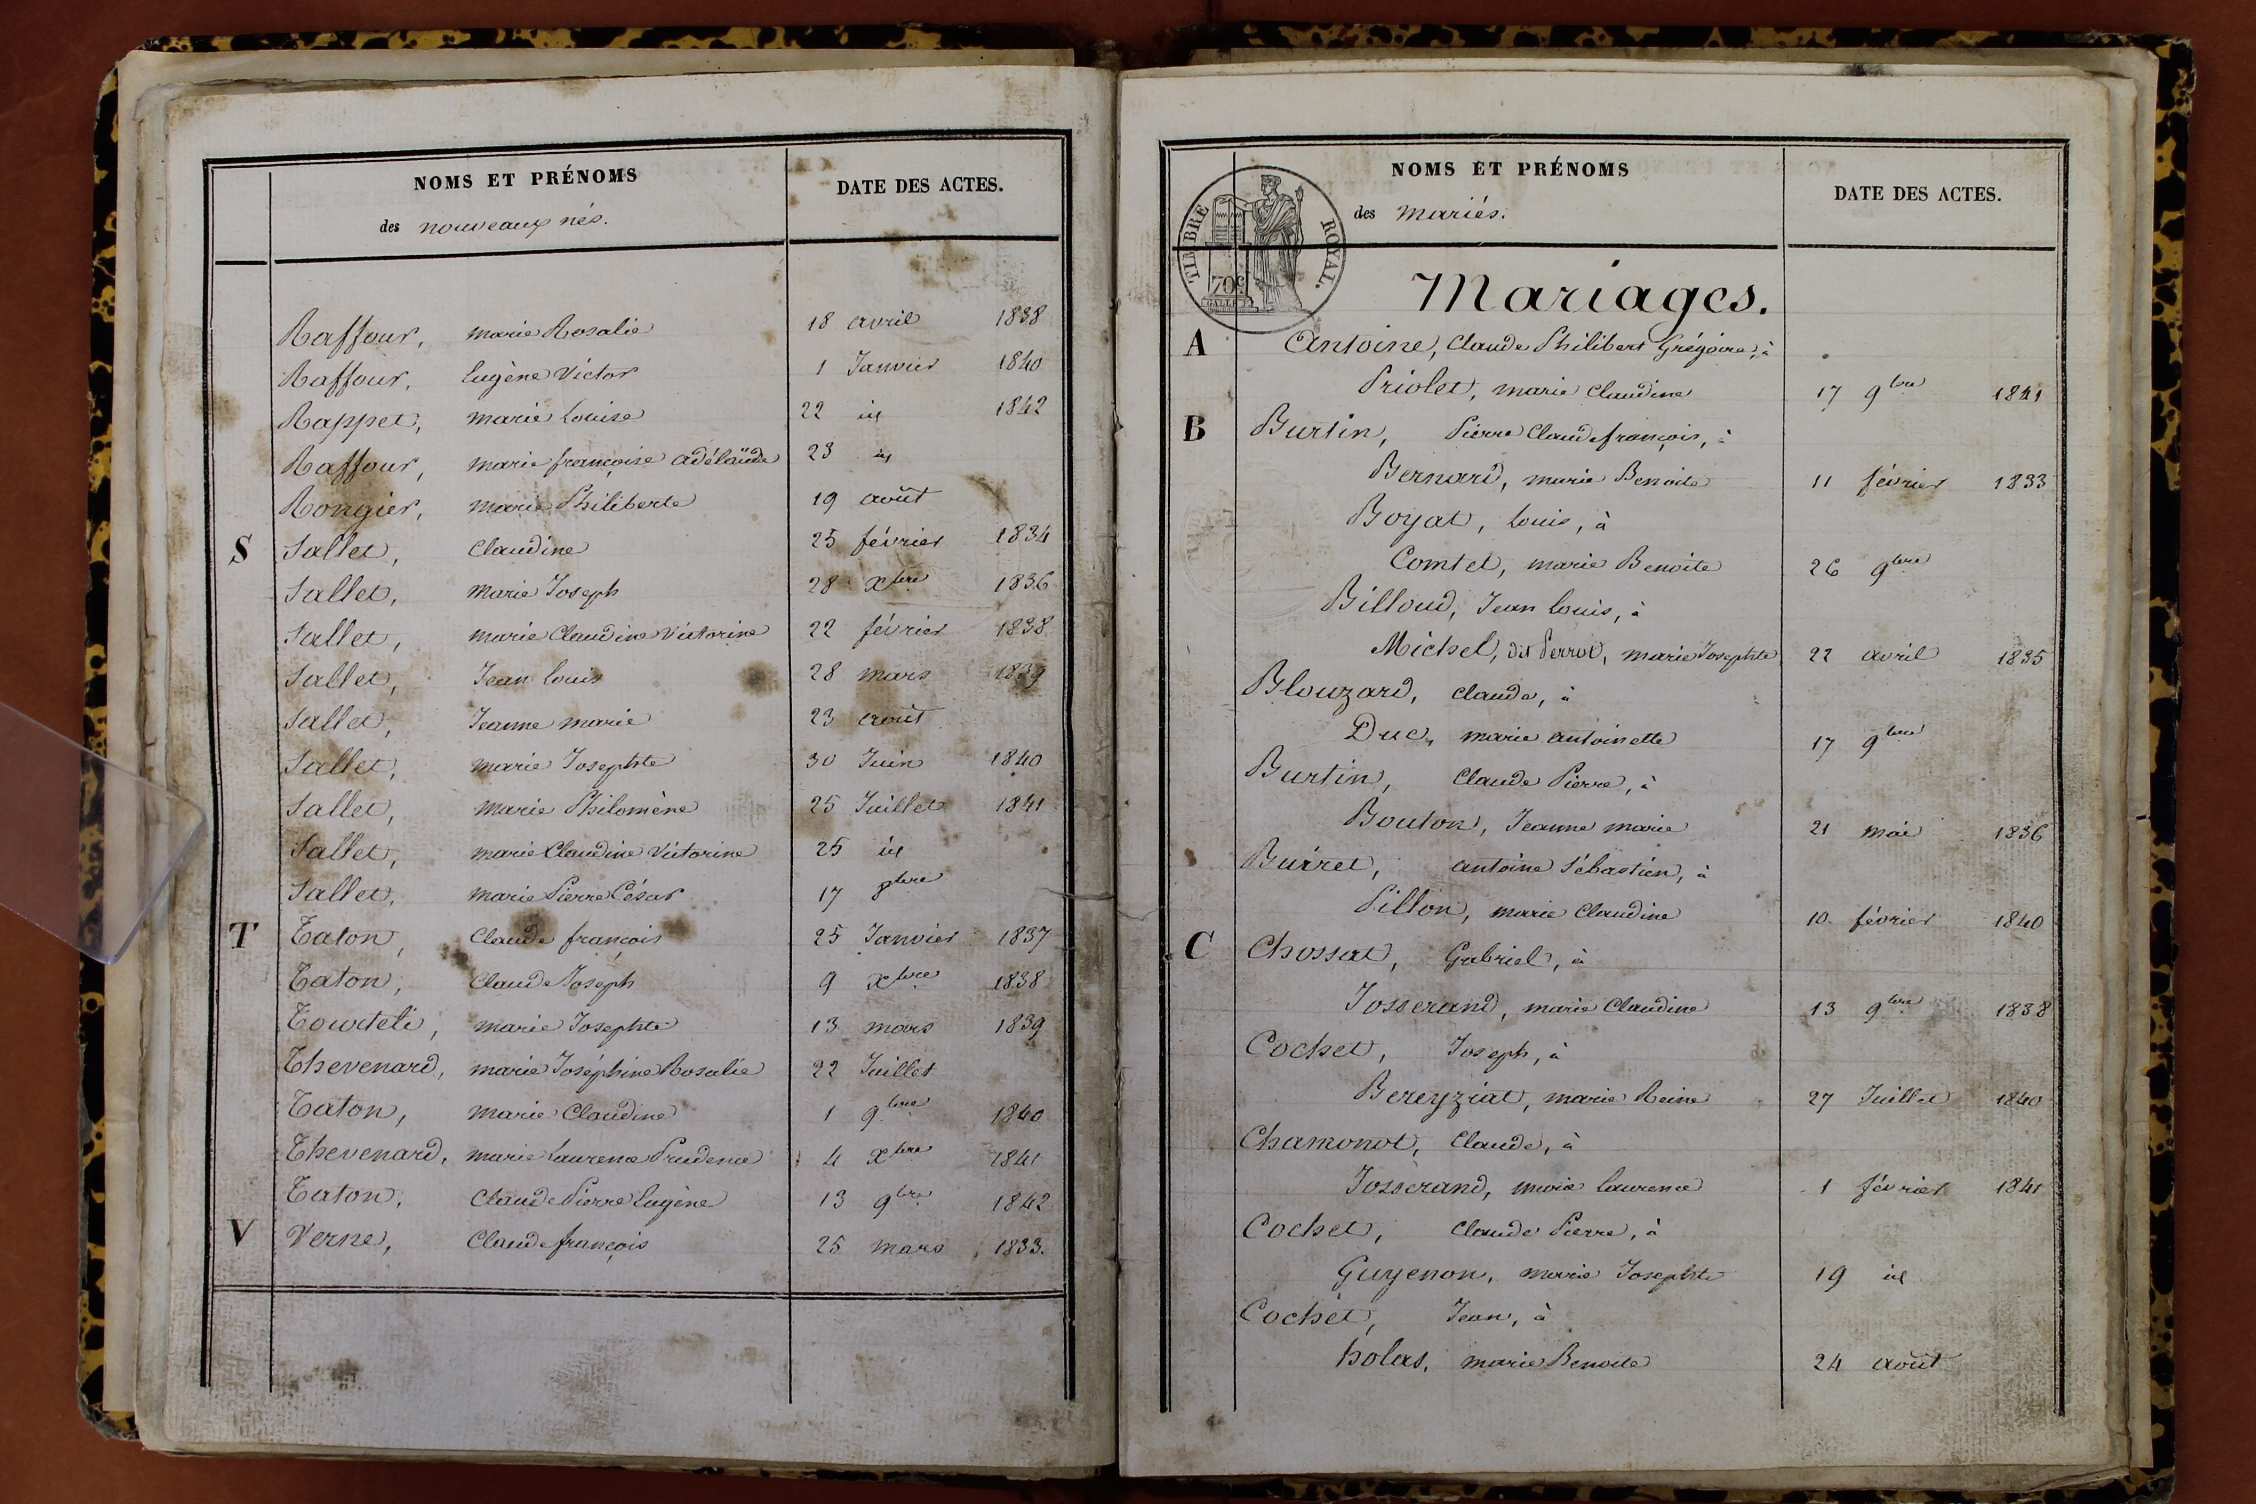 NOMS ET PRÉNOMS
des nouveaux nés.
DATE DES ACTES.
Raffour, marie Rosalie 18 avril 1838
Raffour, Eugène Victor 1 Janvier 1840
Rappet, marie Louise 22 id 1842
Raffour, marie françoise adélaïde 23 id
Rongier, marie Philiberte 19 août
S Sallet, Claudine 25 février 1834
Sallet, Marie Joseph 28 Xbre 1836
Sallet, marie Claudine Victorine 22 février 1838
Sallet, Jean Louis 28 mars 1839
Sallet, Jeanne marie 23 août
Sallet, marie Josephte 30 Juin 1840
Sallet, marie Philomène 25 Juillet 1841
Sallet, marie Claudine Victorine 25 id
Sallet, marie Pierre César 17 8bre
T Taton, Claude françois 25 Janvier 1837
Taton, Claude Joseph 9 Xbre 1838
Tourteli, marie Josephte 13 mars 1839
Thevenard, marie Joséphine Rosalie 22 Juillet
Taton, marie Claudine 1 9bre 1840
Thevenard, marie Laurence Prudence 4 Xbre 1841
Taton, Claude Pierre Eugène 13 9bre 1842
V Verne, Claude françois 25 mars 1833.
NOMS ET PRÉNOMS
des mariés.
DATE DES ACTES.
TIMBRE ROYAL.
70c
Mariages.
A Antoine, Claude Philibert Grégoire, à
Priolet, marie Claudine 17 9bre 1841
B Burtin, Pierre Claude françois, à
Bernard, marie Benoite 11 février 1833
Boyat, Louis, à
Comtet, marie Benoite 26 9bre
Billoud, Jean Louis, à
Michel, dit Perrot, marie Josephte 22 avril 1835
Blouzard, Claude, à
Duc, marie antoinette 17 9bre
Burtin, Claude Pierre, à
Bouton, Jeanne marie 21 mai 1836
Buiret, antoine Sébastien, à
Pillon, marie Claudine 10 février 1840
C Chossat, Gabriel, à
Josserand, marie Claudine 13 9bre 1838
Cochet, Joseph, à
Bereyziat, marie Reine 27 Juillet 1840
Chamonot, Claude, à
Josserand, marie Laurence 1 février 1841
Cochet, Claude Pierre, à
Guyenon, marie Josephte 19 id
Cochet, Jean, à
holas, marie Benoite 24 août